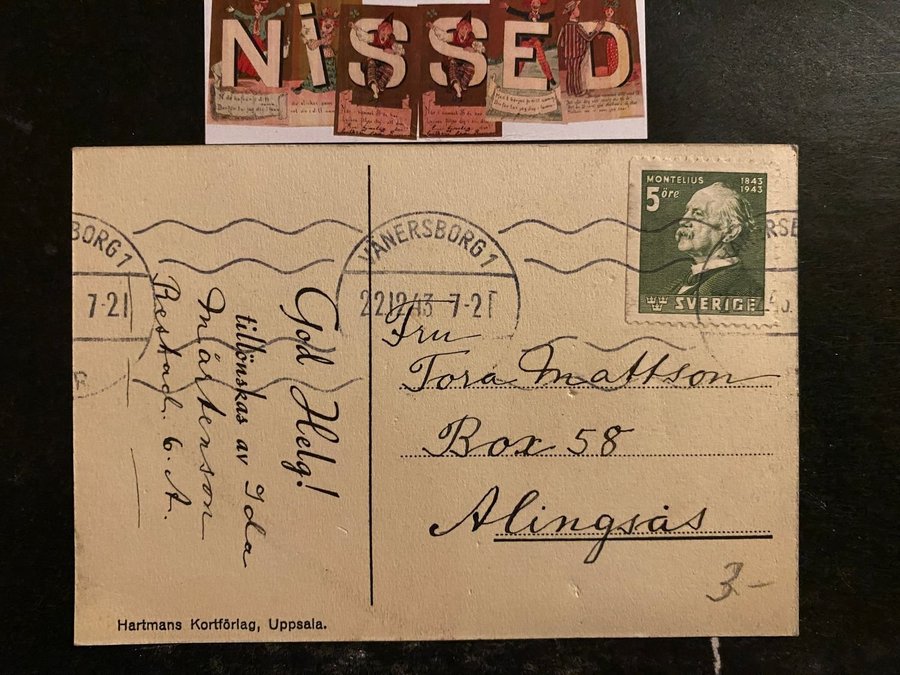 NISSED
MONTELIUS 1843
1943
5 öre
SVERIGE
BORG 1
7-21
VÄNERSBORG 1
22 12 43 7-21
God Helg!
tillönskas av Ida
Mårtenson
Restad. 6. A.
Fru
Tora Mattson
Box 58
Alingsås
3-
Hartmans Kortförlag, Uppsala.